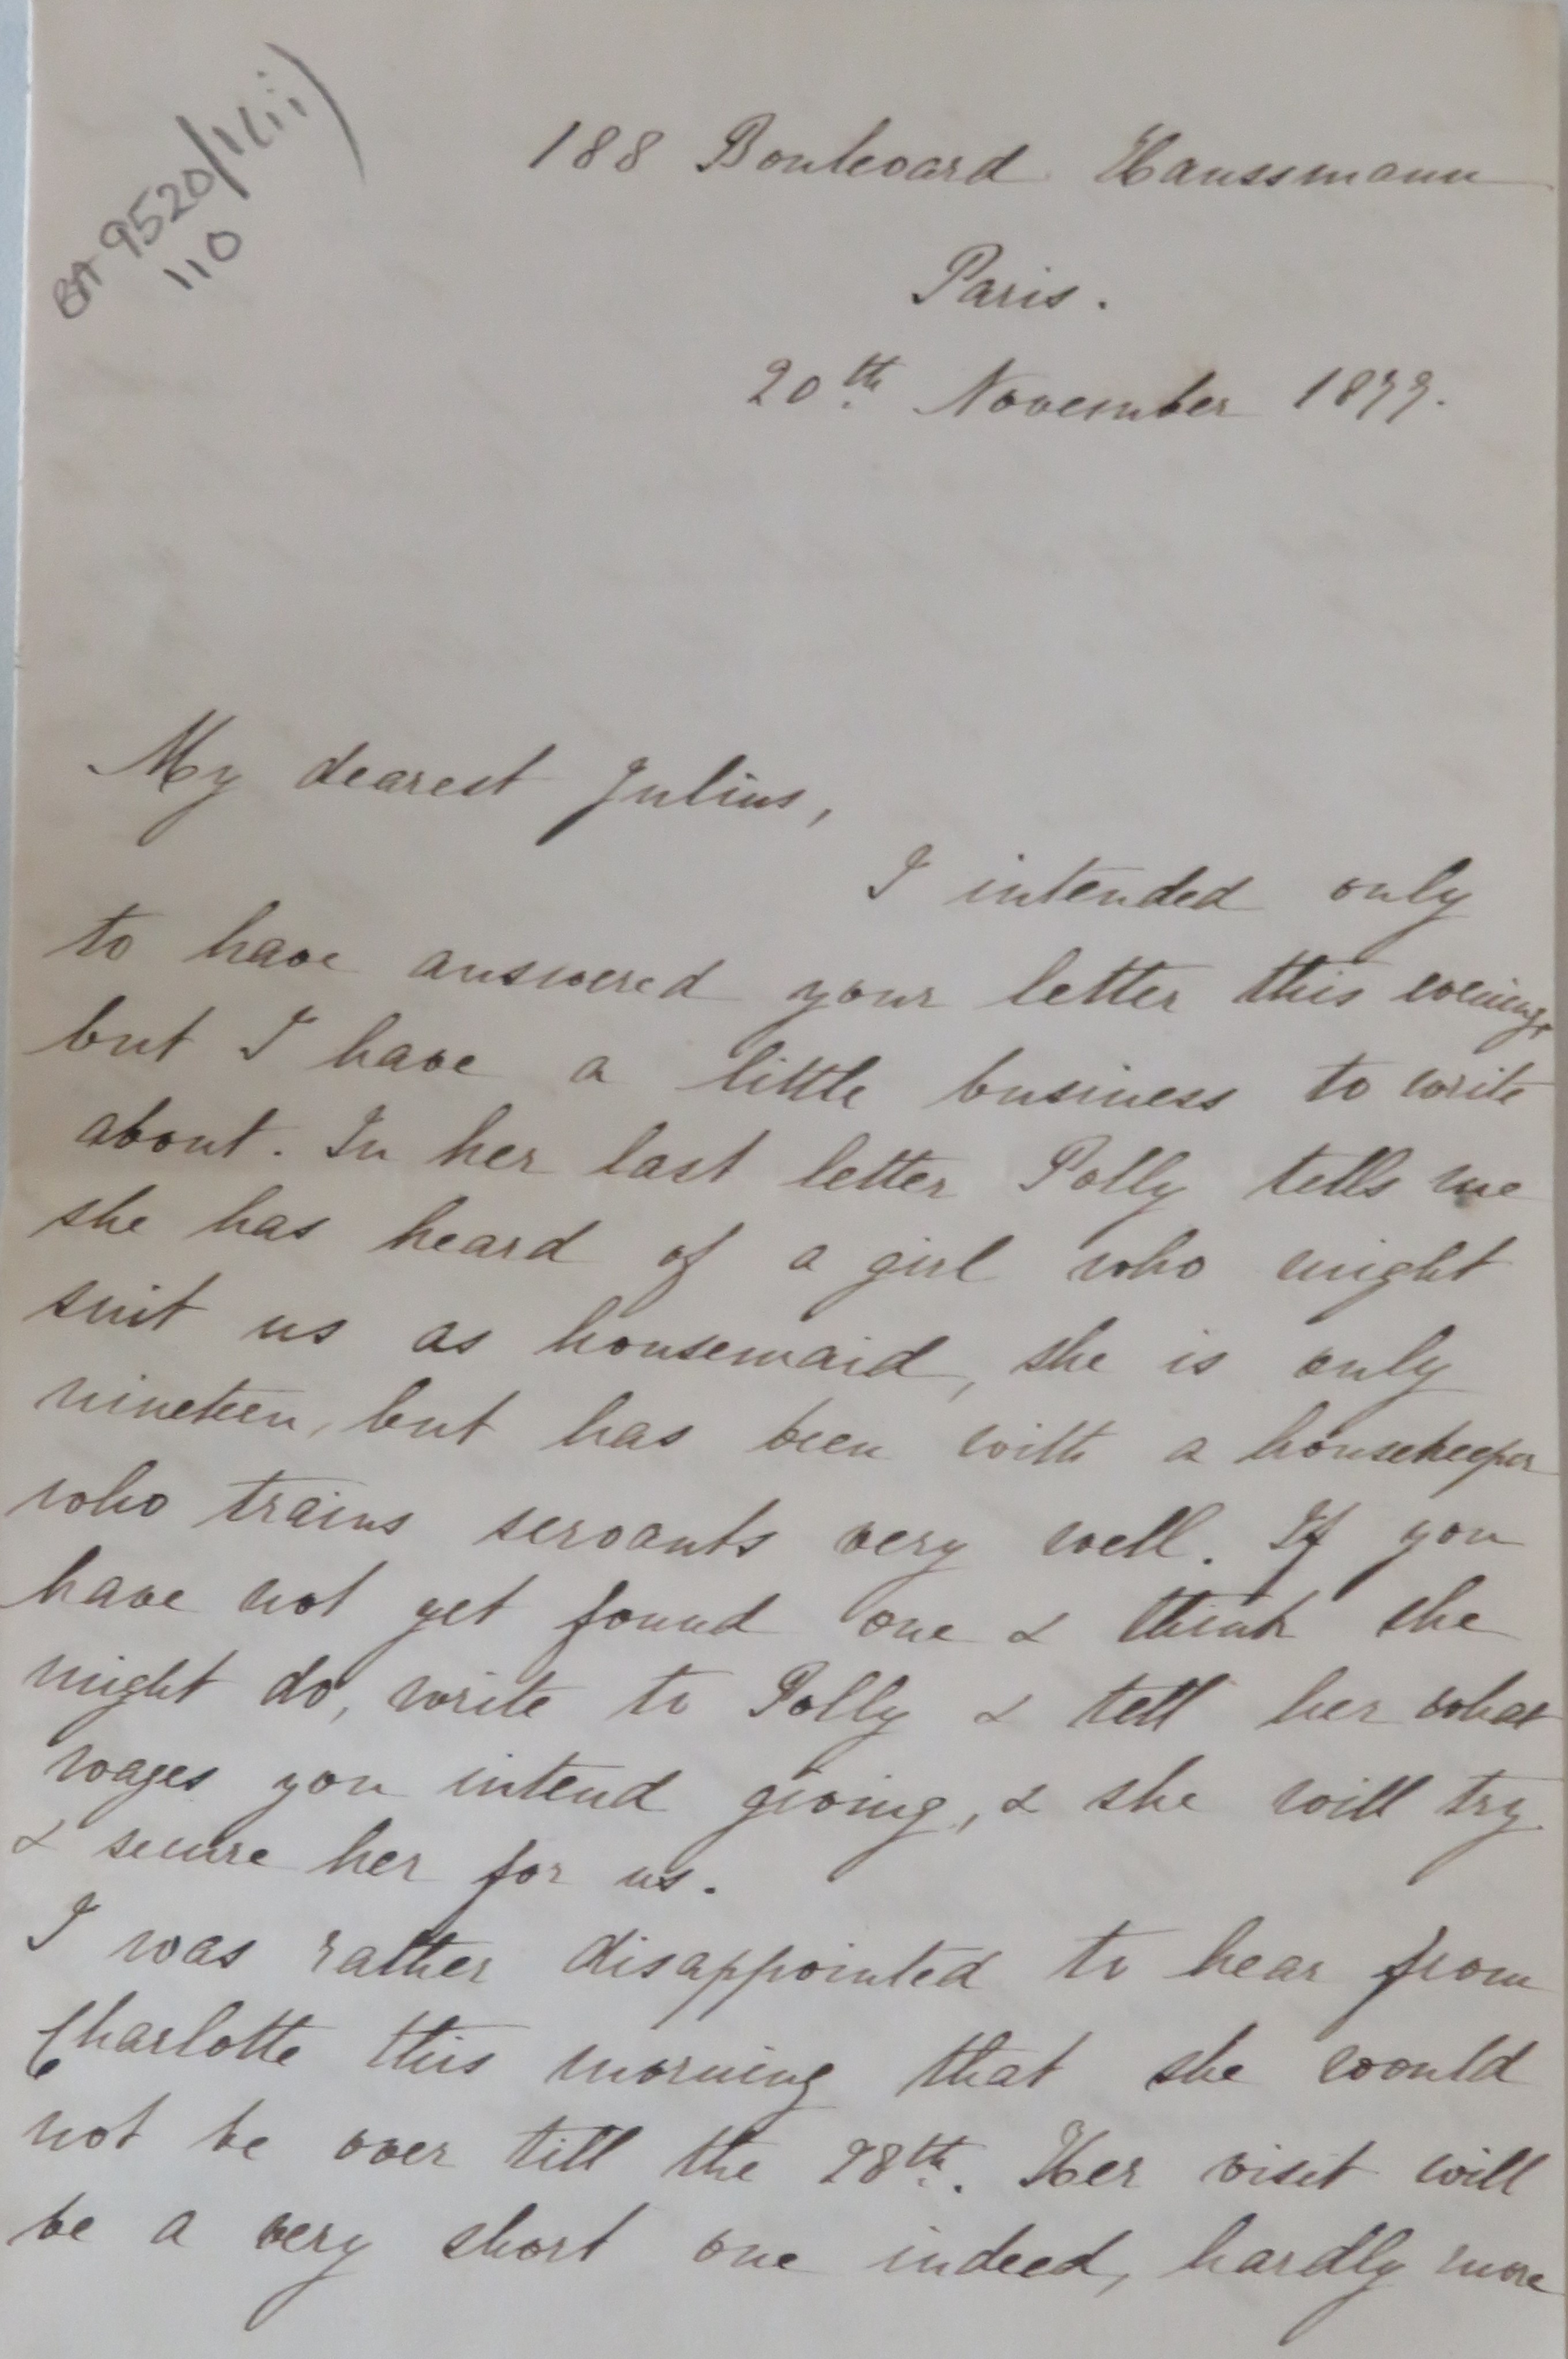 BA 9520/1(ii)
110
188 Boulevard Haussmann
Paris.
20th November 1877.
My dearest Julius,
I intended only
to have answered your letter this evening,
but I have a little business to write
about. In her last letter Polly tells me
she has heard of a girl who might
suit us as housemaid, she is only
nineteen, but has been with a housekeeper
who trains servants very well. If you
have not yet found one & think she
might do, write to Polly & tell her what
wages you intend giving, & she will try
& secure her for us.
I was rather disappointed to hear from
Charlotte this morning that she would
not be over till the 28th. Her visit will
be a very short one indeed, hardly more